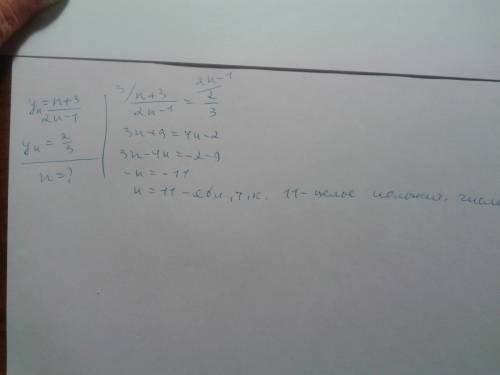 yₙ = n+3 / 2n-1
yₙ = 2/3
n = ?
3/ n+3 / 2n-1 = 2n-1/ 2 / 3
3n+9 = 4n-2
3n-4n = -2-9
-n = -11
n = 11 - явл, т, к. 11 - целое положит. число